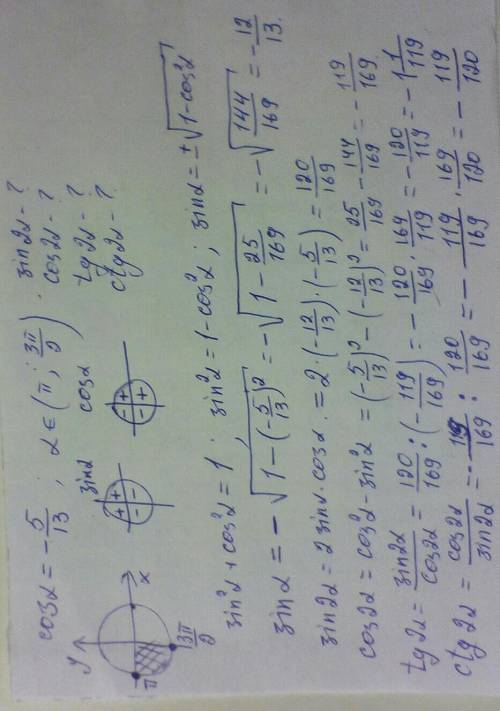 cosα = -5/13 ; α ∈ (π ; 3π/2) . sin2α - ?
cos2α - ?
tg2α - ?
ctg2α - ?
y
x
π
3π/2
sinα
cosα
+ +
- -
- +
- +
sin²α + cos²α = 1 ; sin²α = 1 - cos²α ; sinα = ±√(1 - cos²α)
sinα = -√(1 - (-5/13)²) = -√(1 - 25/169) = -√(144/169) = -12/13.
sin2α = 2 sinα · cosα = 2 · (-12/13) · (-5/13) = 120/169
cos2α = cos²α - sin²α = (-5/13)² - (-12/13)² = 25/169 - 144/169 = -119/169.
tg2α = sin2α/cos2α = 120/169 : (-119/169) = -120/169 · 169/119 = -120/119 = -1 1/119
ctg2α = cos2α/sin2α = -119/169 : 120/169 = -119/169 · 169/120 = -119/120